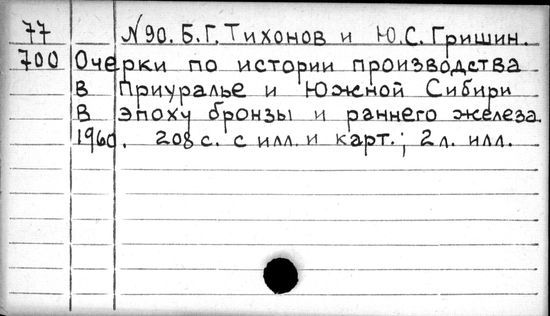 77 N 90. Б. Г. Тихонов и Ю. С. Гришин.
700 Очерки по истории производства
в Приуралье и Южной Сибири
в эпоху бронзы и раннего железа.
1960. 208 с. с илл. и карт.; 2 л. илл.